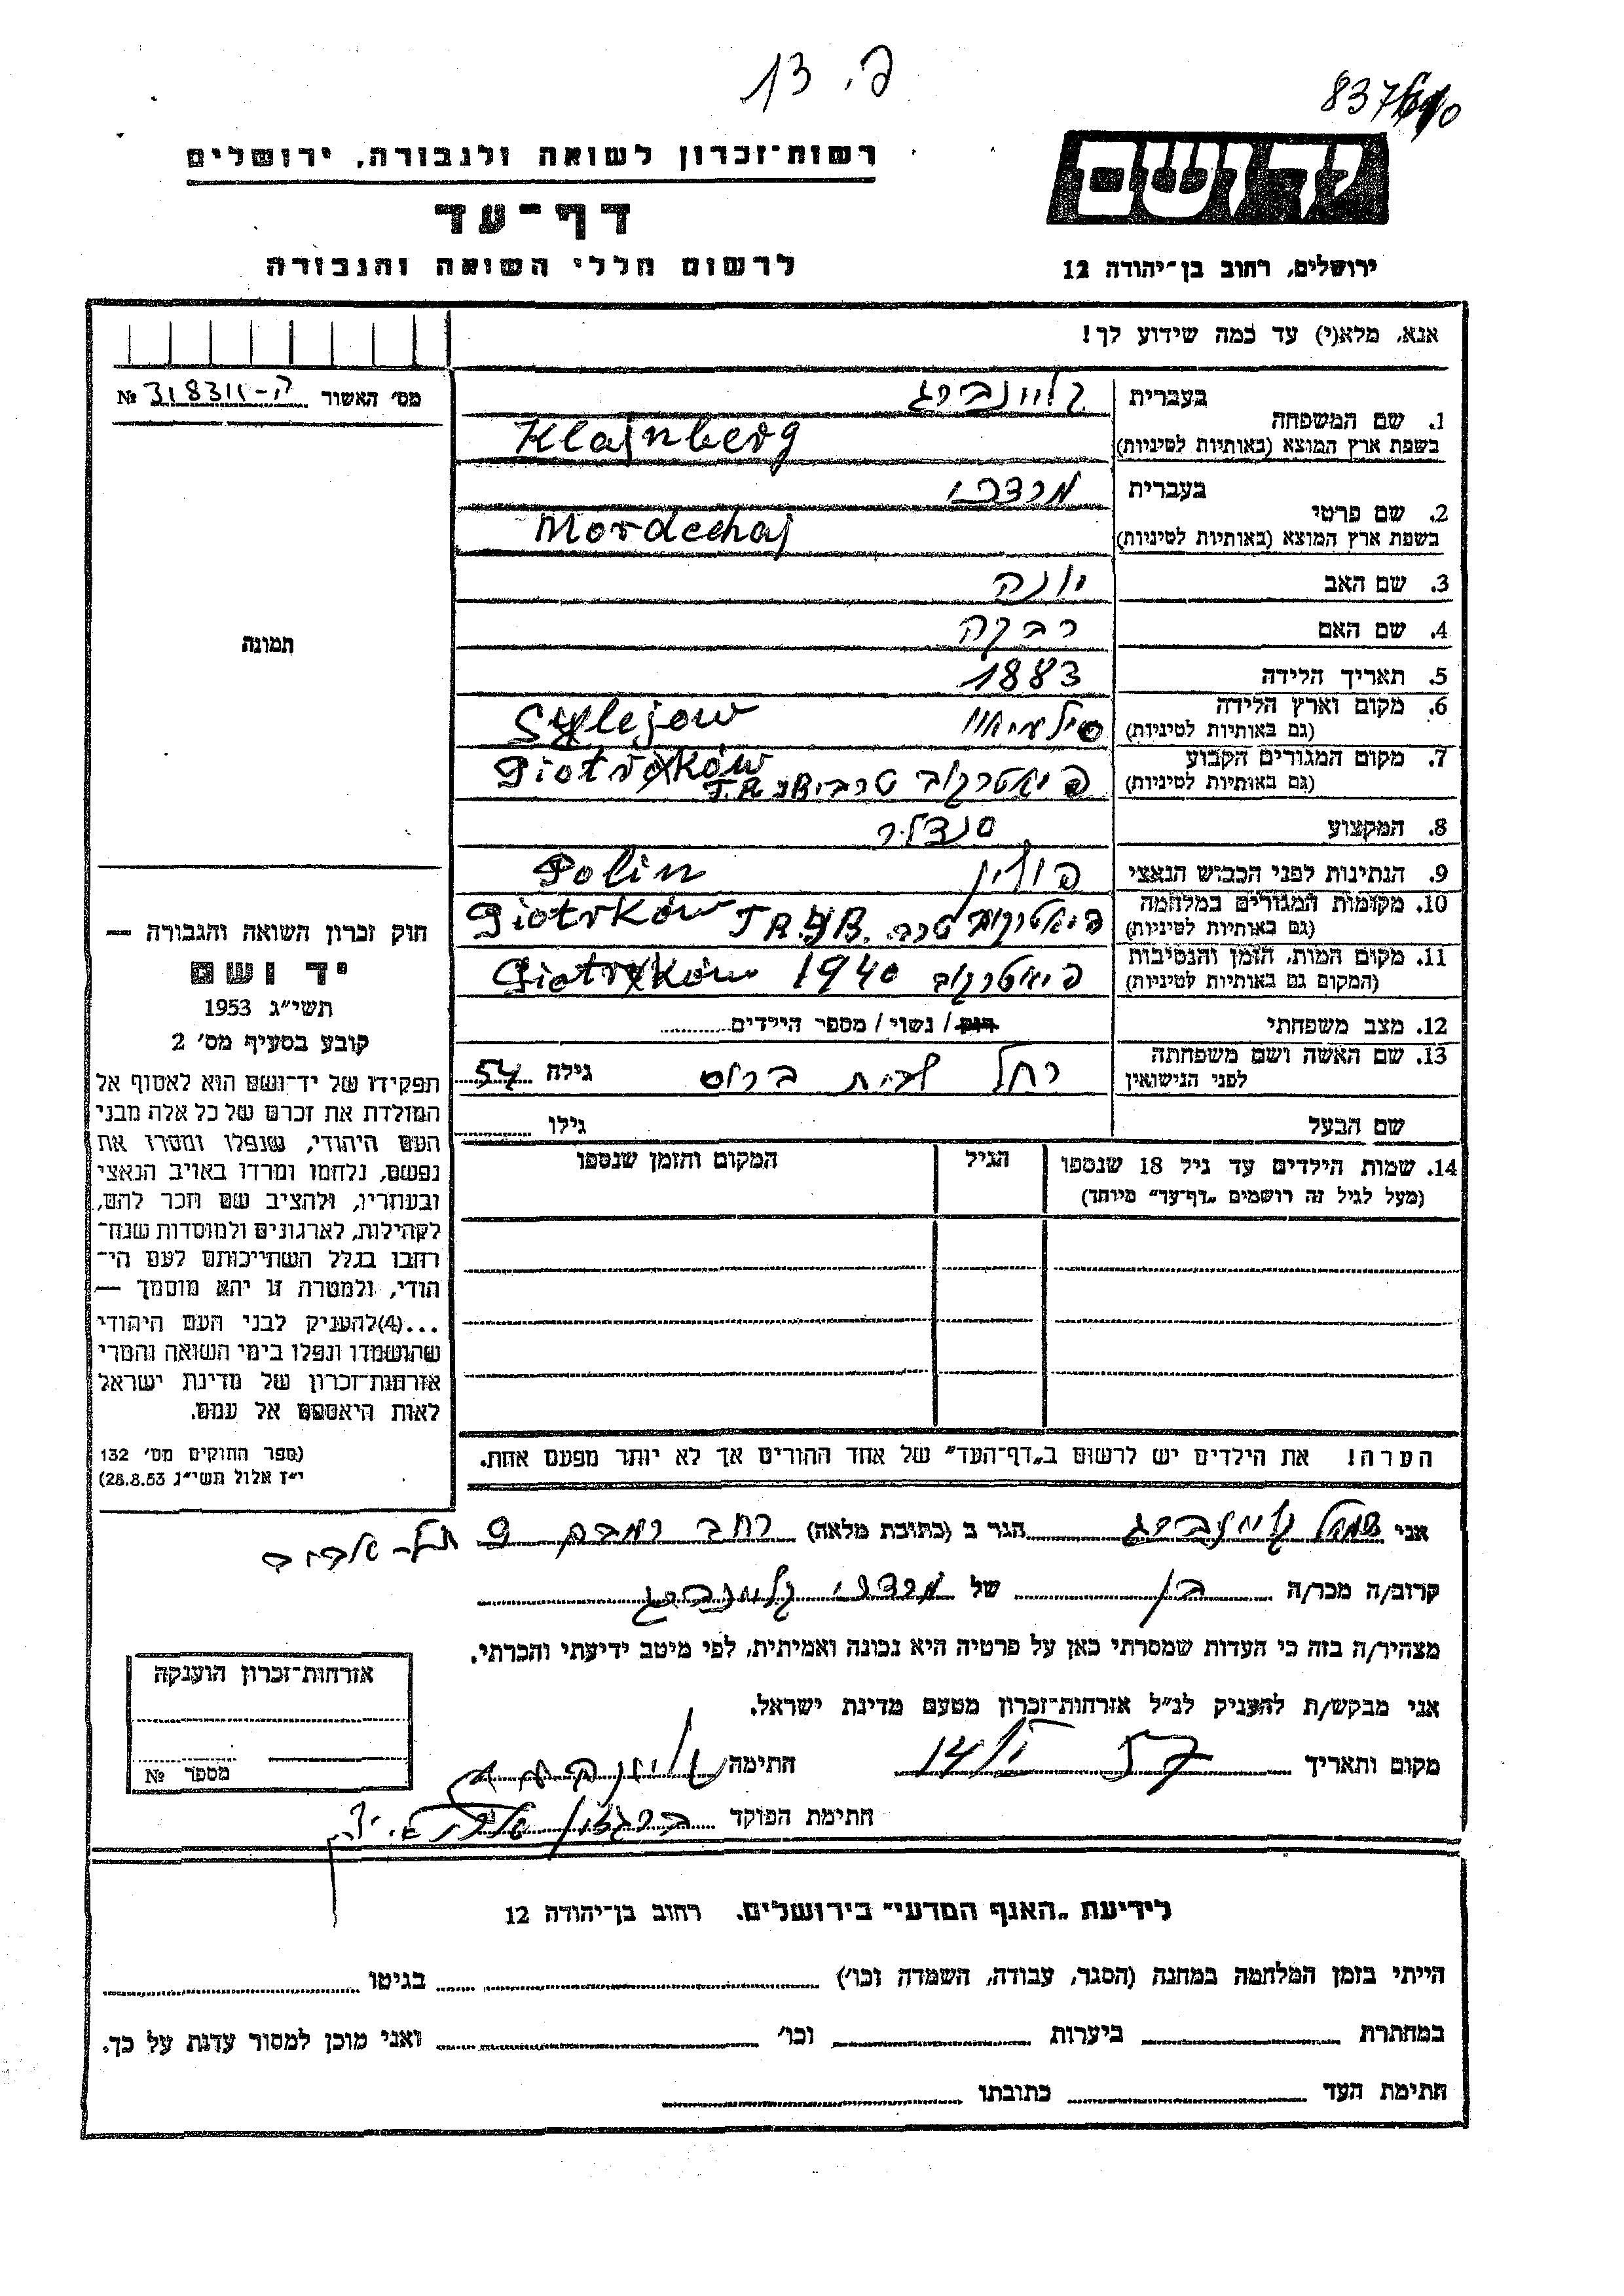 13 .פ
837/610
רשות־זכרון לשואה ולגבורה, ירושלים
יד ושם
דף־עד
לרשום חללי השואה והגבורה
ירושלים, רחוב בן־יהודה 12
אנא, מלא(י) עד כמה שידוע לך!
מס׳ האשור
№
1. שם המשפחה
בעברית
קליינברג
בשפת ארץ המוצא (באותיות לטיניות)
Klajnberg
2. שם פרטי
בעברית
מרדכי
בשפת ארץ המוצא (באותיות לטיניות)
Mordechaj
3. שם האב
יונה
4. שם האם
רבקה
5. תאריך הלידה
1883
6. מקום וארץ הלידה
(גם באותיות לטיניות)
Sylejow
7. מקום המגורים הקבוע
(גם באותיות לטיניות)
פיוטרקוב טריב
Piotrków
8. המקצוע
סנדלר
9. הנתינות לפני הכבוש הנאצי
פולין Polin
10. מקומות המגורים במלחמה
(גם באותיות לטיניות)
פיוטרקוב טרב. Piotrków TRYB.
11. מקום המות, הזמן והנסיבות
(המקום גם באותיות לטיניות)
פיוטרקוב 1940 Piotrków
12. מצב משפחתי
רווק / נשוי / מספר הילדים
13. שם האשה ושם משפחתה
לפני הנישואין
רחל לבית ברוט
גילה 54
שם הבעל
גילו
14. שמות הילדים עד גיל 18 שנספו
(מעל לגיל זה רושמים „דף־עד” מיוחד)
הגיל
המקום והזמן שנספו
הערה! את הילדים יש לרשום ב„דף־העד” של אחד ההורים אך לא יותר מפעם אחת.
תמונה
חוק זכרון השואה והגבורה —
יד ושם
תשי״ג 1953
קובע בסעיף מס׳ 2
תפקידו של יד־ושם הוא לאסוף אל
המולדת את זכרם של כל אלה מבני
העם היהודי, שנפלו ומסרו את
נפשם, נלחמו ומרדו באויב הנאצי
ובעוזריו, ולהציב שם וזכר להם,
לקהילות, לארגונים ולמוסדות שנח־
רבו בגלל השתייכותם לעם הי־
הודי, ולמטרה זו יהא מוסמך —
...(4)להעניק לבני העם היהודי
שהושמדו ונפלו בימי השואה והמרי
אזרחות־זכרון של מדינת ישראל
לאות היאספם אל עמם.
(ספר החוקים מס׳ 132
י״ז אלול תשי״ג 28.8.53)
אני שמואל קליינברג הגר ב (כתובת מלאה) רחב 9 תל-אביב
קרוב/ה מכר/ה בן של מרדכי קליינברג
מצהיר/ה בזה כי העדות שמסרתי כאן על פרטיה היא נכונה ואמיתית, לפי מיטב ידיעתי והכרתי.
אני מבקש/ת להעניק לנ״ל אזרחות־זכרון מטעם מדינת ישראל.
מקום ותאריך
חתימה
חתימת הפוקד
אזרחות־זכרון הוענקה
מספר №
לידיעת „האגף המדעי” בירושלים. רחוב בן־יהודה 12
הייתי בזמן המלחמה במחנה (הסגר, עבודה, השמדה וכו׳) בגיטו
במחתרת ביערות וכו׳ ואני מוכן למסור עדות על כך.
חתימת העד כתובתו